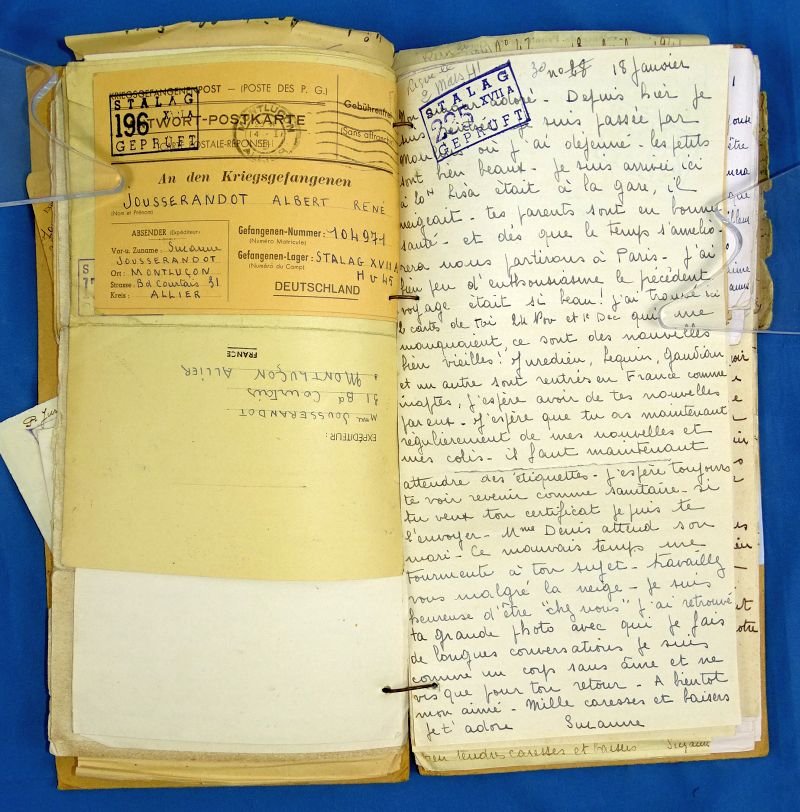 KRIEGSGEFANGENENPOST — (POSTE DES P. G.)
STALAG
196 XVII A
GEPRÜFT
ANTWORT-POSTKARTE
(CARTE POSTALE-RÉPONSE)
MONTLUÇON
ALLIER
Gebührenfrei
(Sans affranchissement)
An den Kriegsgefangenen
JOUSSERANDOT ALBERT RENÉ
(Nom et Prénom)
ABSENDER (Expéditeur)
Vor-u. Zuname: Suzanne
JOUSSERANDOT
Ort: MONTLUÇON
Strasse: Bd Courtais 31
Kreis: ALLIER
Gefangenen-Nummer: 104971
(Numéro Matricule)
Gefangenen-Lager: STALAG XVII A
(Numéro du Camp)
DEUTSCHLAND
EXPÉDITEUR:
Mme JOUSSERANDOT
31 Bd Courtais
à MONTLUÇON ALLIER
FRANCE
Reçue le
2 Mars 41
30 no 18 Janvier
STALAG
XVII A
GEPRÜFT
Mon adoré - Depuis hier je
suis je suis passée par
où j'ai déjeuné. les petits
sont bien beaux. Je suis arrivée ici
à Lisa était à la gare, il
neigeait. tes parents sont en bonne
santé. et dès que le temps s'amélio-
rera nous partirons à Paris. J'ai
bien peu d'enthousiasme le précédent
voyage était si beau! J'ai trouvé ici
2 carte de toi 24 Nov et 1r Dec qui me
manquaient, ce sont des nouvelles
bien vieilles! Juredieu, Lequin, Gaudiau
et un autre sont rentrés en France comme
inaptes, j'espère avoir de tes nouvelles
par eux. J'espère que tu as maintenant
régulièrement de mes nouvelles et
mes colis. il faut maintenant
attendre des étiquettes. J'espère toujours
te voir revenir comme sanitaire. si
tu veux ton certificat je puis te
l'envoyer. Mme Denis attend son
mari. Ce mauvais temps me
tourmente à ton sujet. travaillez
vous malgré la neige. Je suis
heureuse d'être "chez nous" j'ai retrouvé
ta grande photo avec qui je fais
de longues conversations Je suis
comme un corps sans âme et ne
vis que pour ton retour. A bientôt
mon aimé. Mille caresses et baisers
Je t'adore Suzanne
tendres caresses et baisers Suzanne